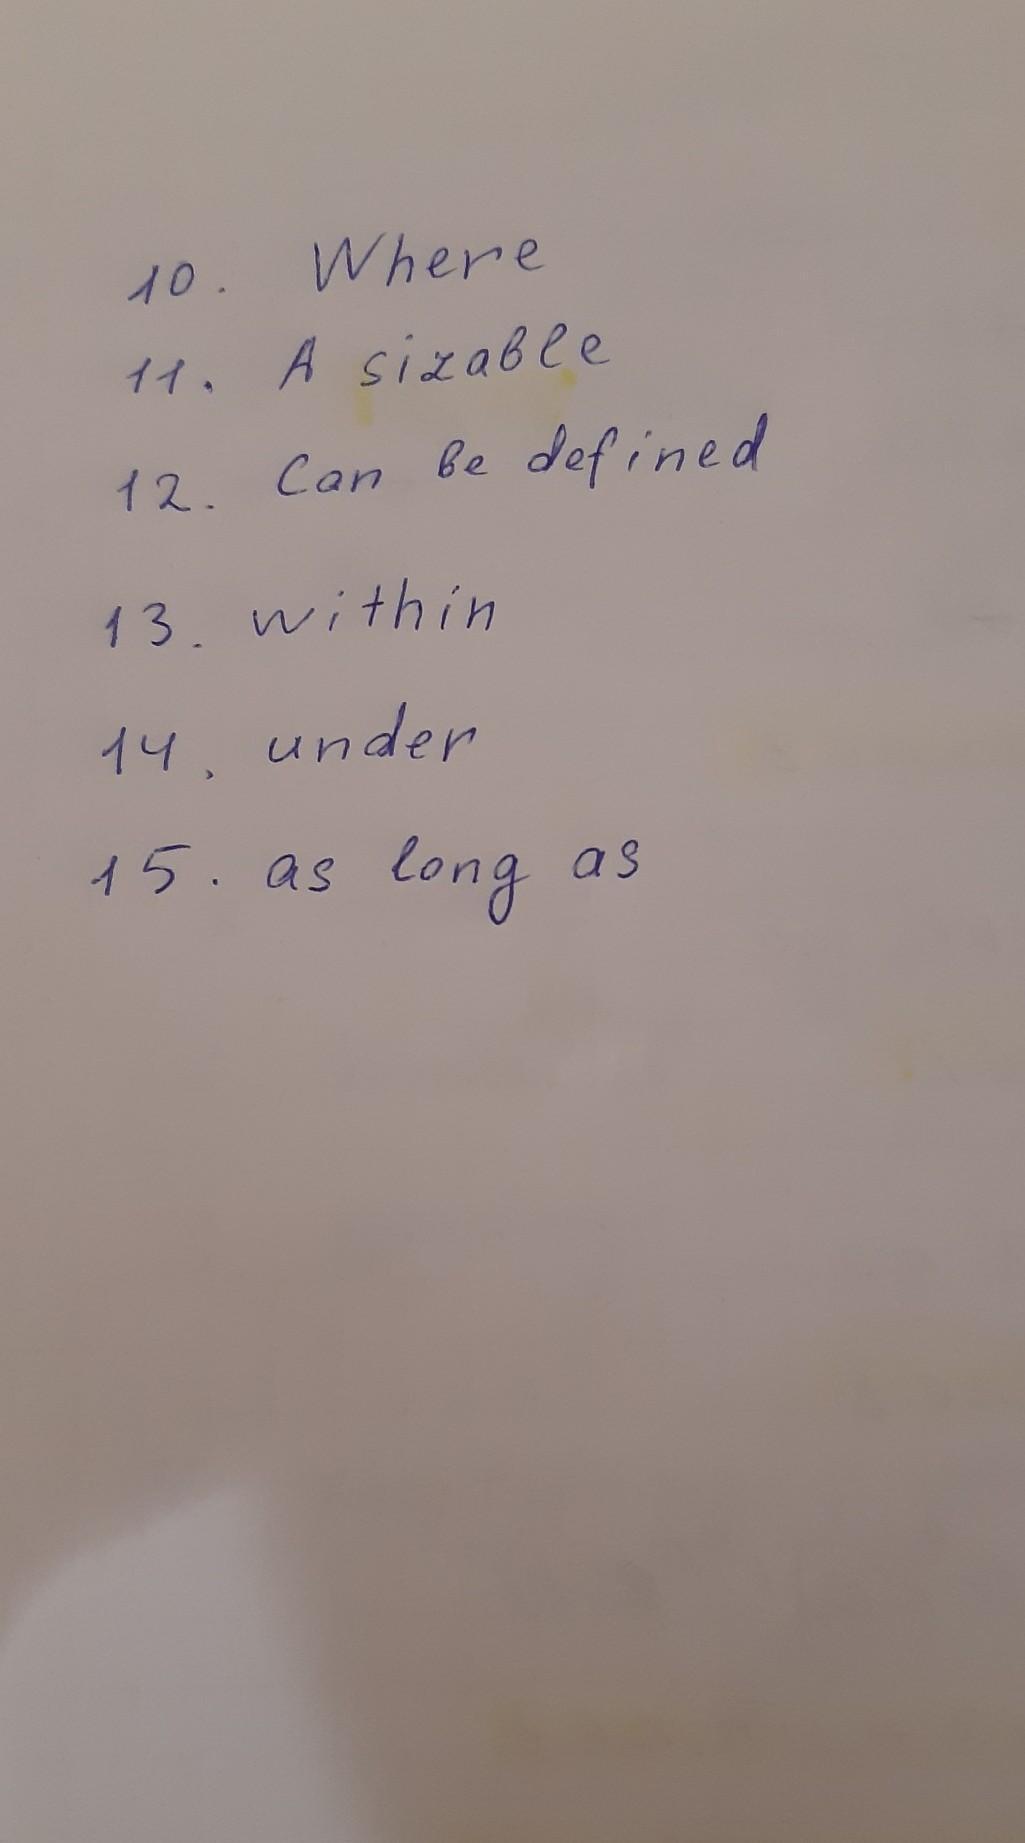 10. Where
11. A sizable
12. Can be defined
13. within
14. under
15. as long as